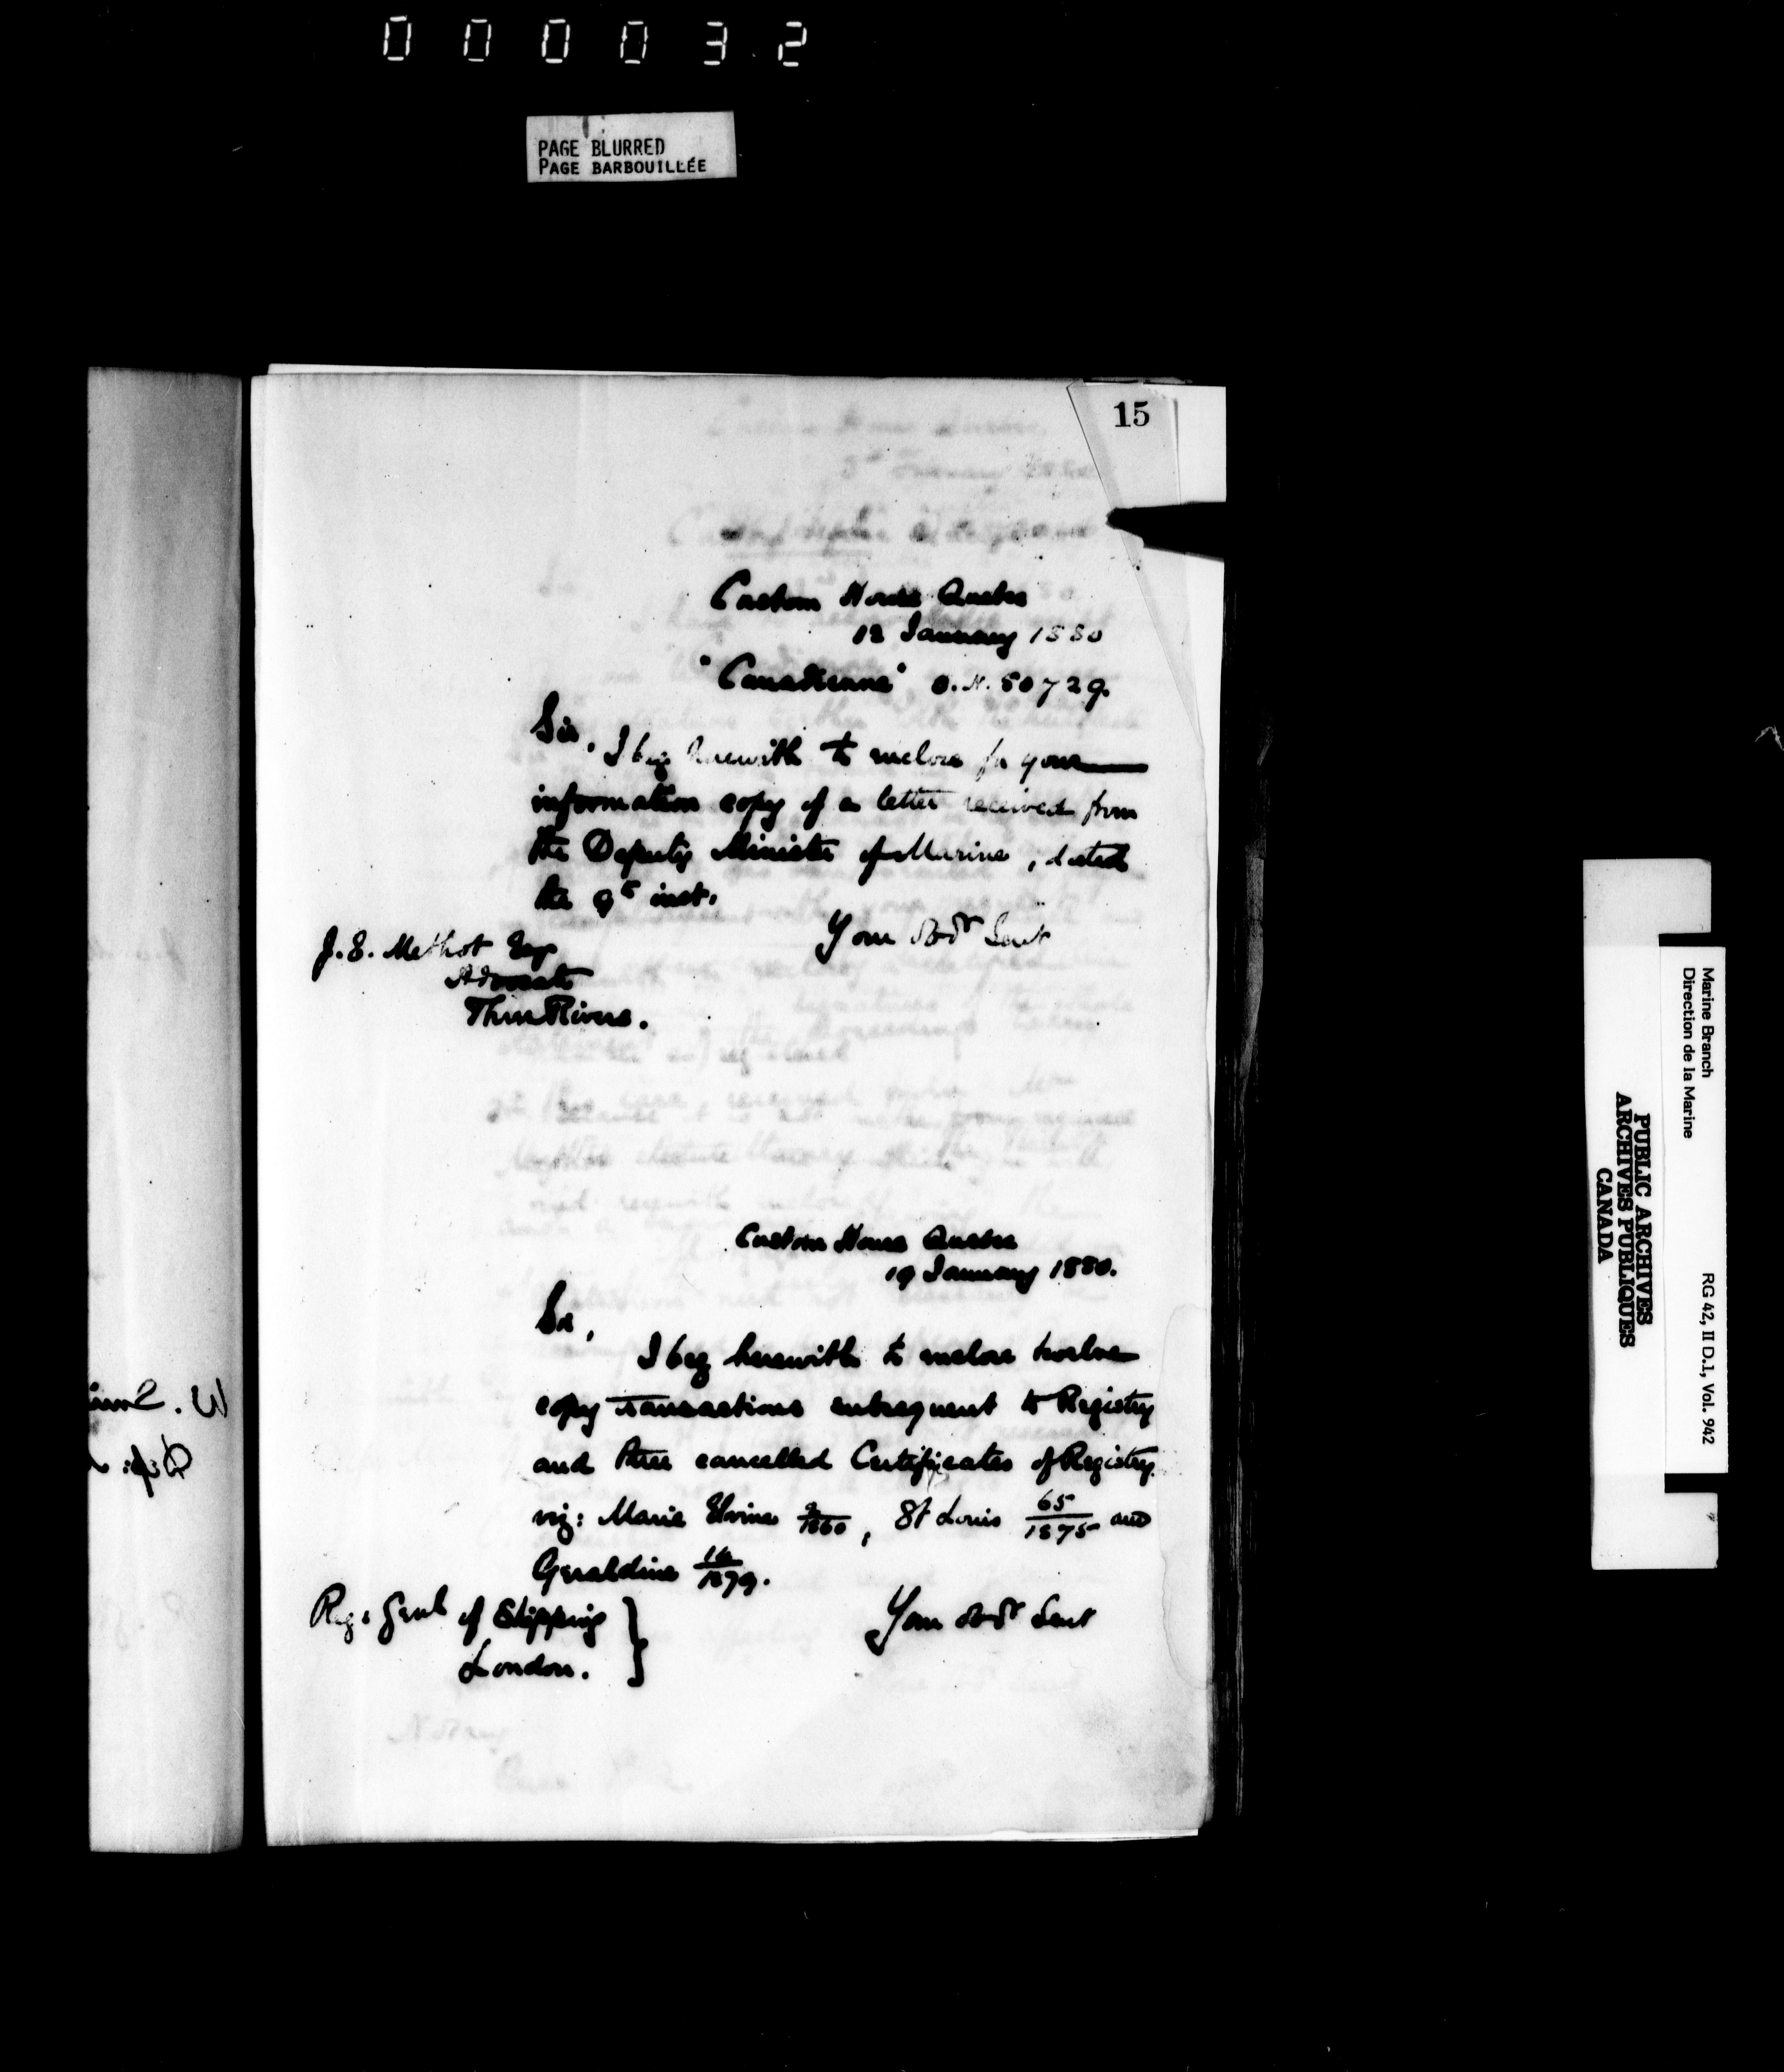 000032
PAGE BLURRED
PAGE BARBOUILLÉE
15
Custom House Quebec
12 January 1880
"Canadienne" O.N. 50729.
Sir,
I beg herewith to enclose for your
information copy of a letter received from
the Deputy Minister of Marine, dated
the 9th inst.
Your Obdt Servt
J.E. Methot Esqr
Advocate
Three Rivers.
Custom House Quebec
19 January 1880.
Sir,
I beg herewith to enclose twelve
copy transactions subsequent to Registry
and three cancelled Certificates of Registry
viz: Marie /1860, St Louis 65/1875 and
Geraldine 16/1879.
Your Obdt Servt
Reg: Genl of Shipping
London.
Marine Branch
Direction de la Marine
RG 42, II D.1, Vol. 942
PUBLIC ARCHIVES
ARCHIVES PUBLIQUES
CANADA